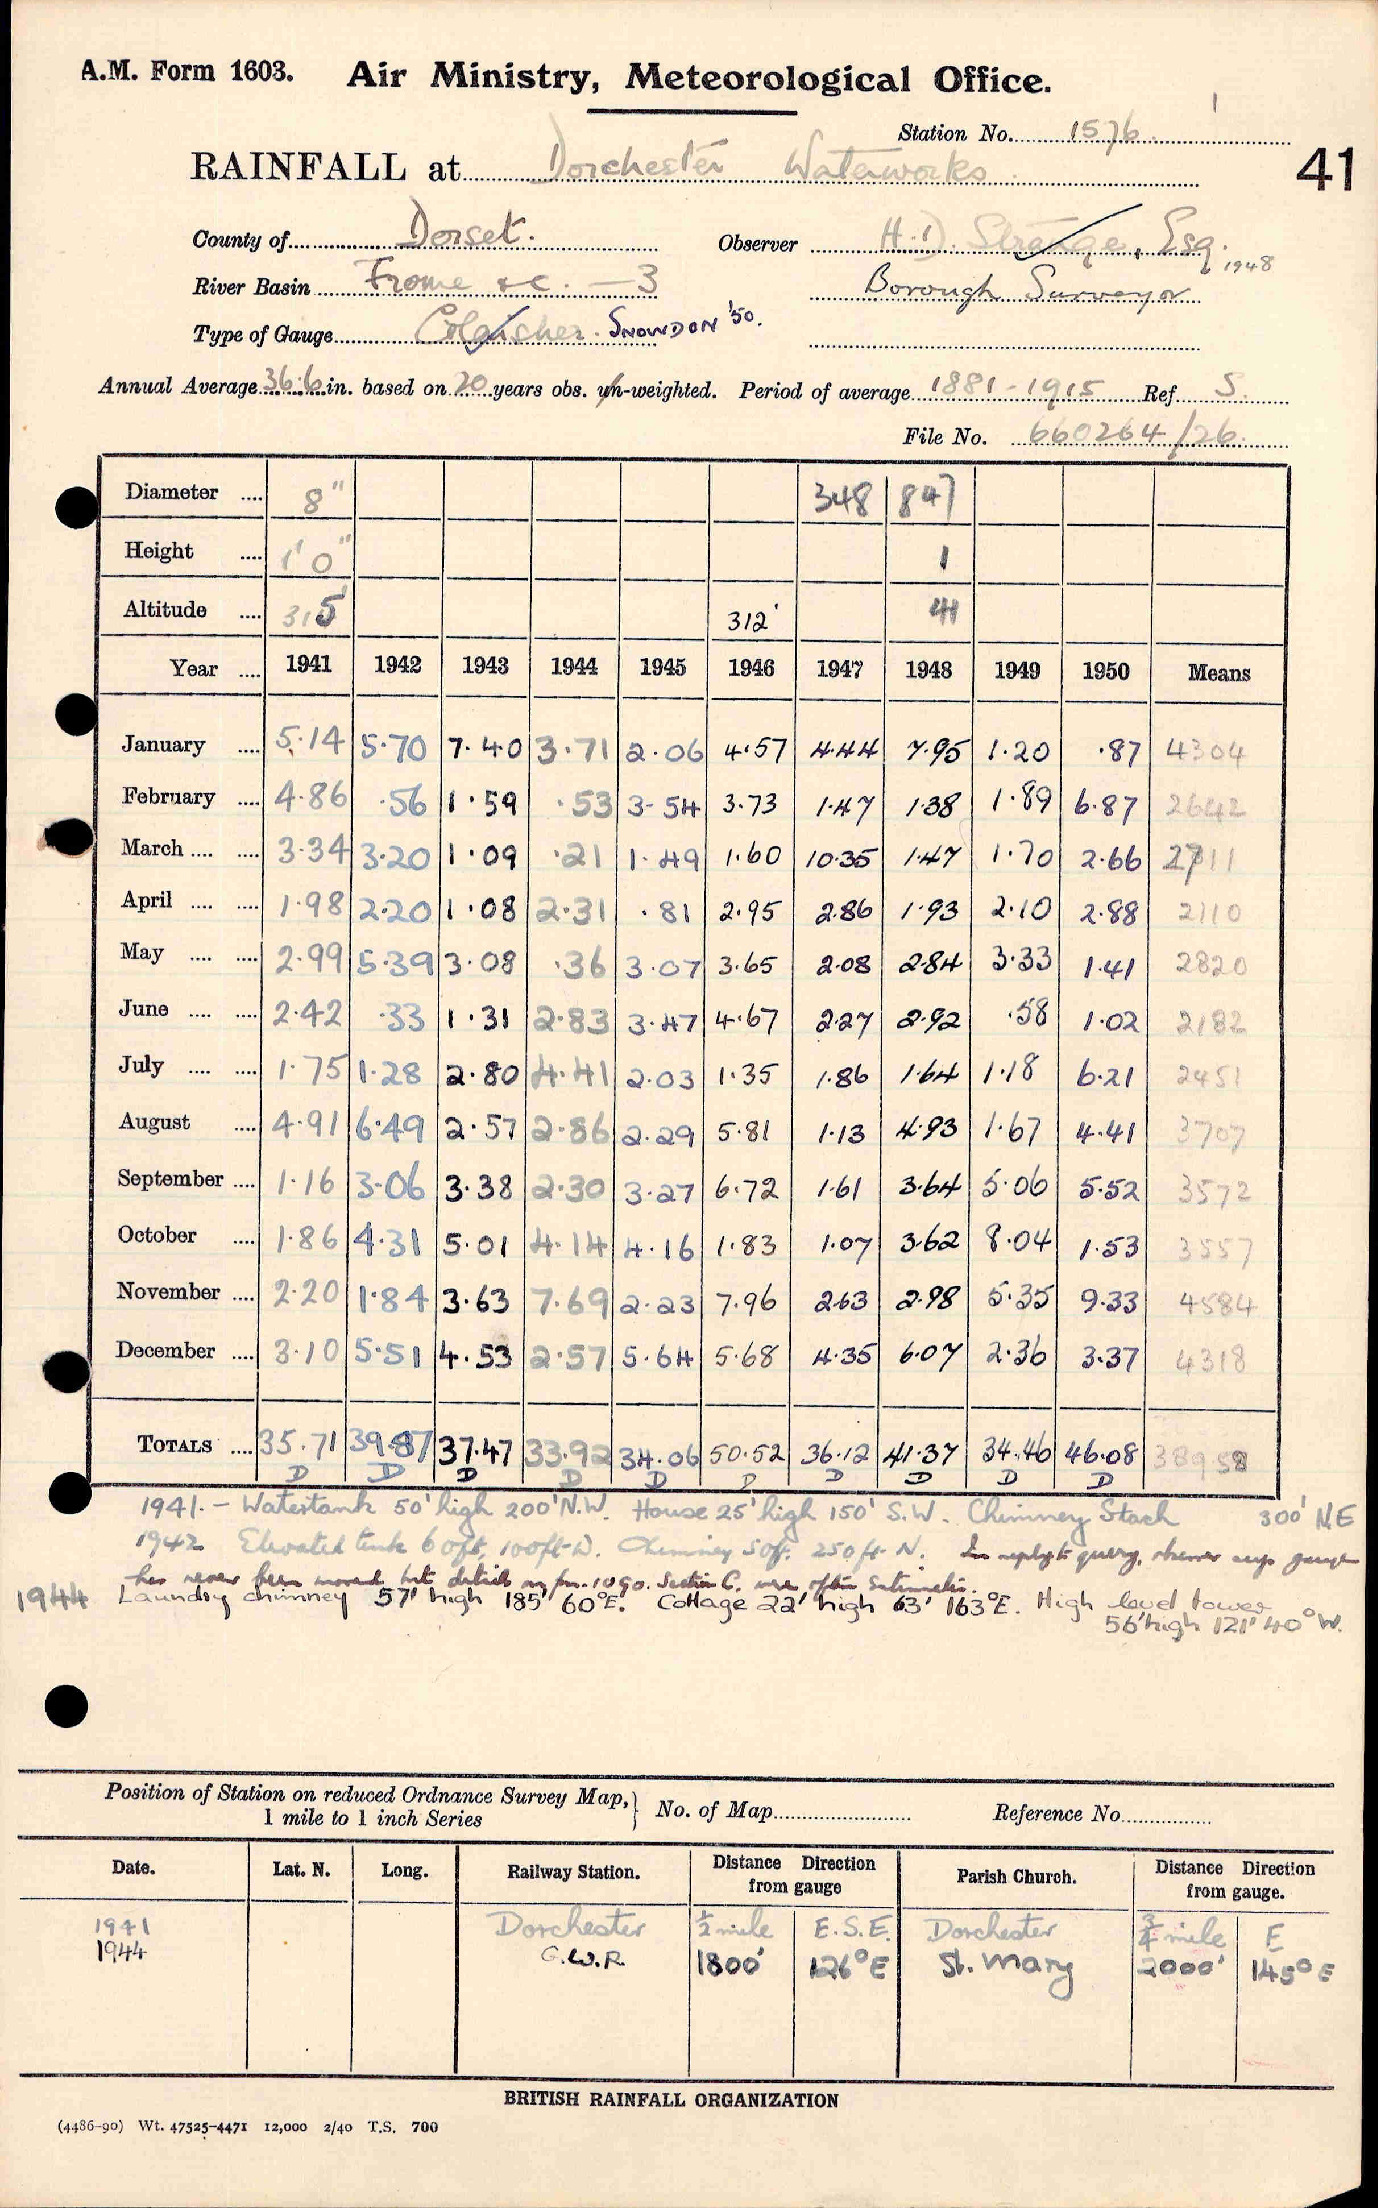 A.M. Form 1603. Air Ministry, Meteorological Office.
Station No. 1576.
RAINFALL at Dorchester Waterworks 41
County of Dorset. Observer H.D. Strange, Esq. 1948
River Basin Frome &c. — 3 Borough Surveyor
Type of Gauge Casella. Snowdon '50.
Annual Average 36.6 in. based on 20 years obs. un-weighted. Period of average 1881-1915 Ref S.
File No. 660264/26.
Diameter .... 8" 348 847
Height .... 1' 0" 1
Altitude .... 315 312' 41
Year .... 1941 1942 1943 1944 1945 1946 1947 1948 1949 1950 Means
January .... 5.14 5.70 7.40 3.71 2.06 4.57 4.44 7.95 1.20 .87 4304
February .... 4.86 .56 1.59 .53 3.54 3.73 1.47 1.38 1.89 6.87 2642
March .... .... 3.34 3.20 1.09 .21 1.49 1.60 10.35 1.47 1.70 2.66 2711
April .... .... 1.98 2.20 1.08 2.31 .81 2.95 2.86 1.93 2.10 2.88 2110
May .... .... 2.99 5.39 3.08 .36 3.07 3.65 2.08 2.84 3.33 1.41 2820
June .... .... 2.42 .33 1.31 2.83 3.47 4.67 2.27 2.92 .58 1.02 2182
July .... .... 1.75 1.28 2.80 4.41 2.03 1.35 1.86 1.64 1.18 6.21 2451
August .... 4.91 6.49 2.57 2.86 2.29 5.81 1.13 4.93 1.67 4.41 3707
September .... 1.16 3.06 3.38 2.30 3.27 6.72 1.61 3.64 5.06 5.52 3572
October .... 1.86 4.31 5.01 4.14 4.16 1.83 1.07 3.62 8.04 1.53 3557
November .... 2.20 1.84 3.63 7.69 2.23 7.96 2.63 2.98 5.35 9.33 4584
December .... 3.10 5.51 4.53 2.57 5.64 5.68 4.35 6.07 2.36 3.37 4318
TOTALS .... 35.71 39.87 37.47 33.92 34.06 50.52 36.12 41.37 34.46 46.08 38958
D D D D D D D D D D
1941. - Watertank 50' high 200' N.W. House 25' high 150' S.W. Chimney Stack 300' N.E
1942 Elevated tank 60ft, 100ft W. Chimney 50ft. 250ft N. In reply to query, observer says gauge
has never been moved but details on fm. 1090. Section C. were often estimates.
1944 Laundry chimney 57' high 185' 60°E. Cottage 22' high 63' 163°E. High level tower
56' high 121' 40°W.
Position of Station on reduced Ordnance Survey Map, 1 mile to 1 inch Series } No. of Map Reference No.
Date. Lat. N. Long. Railway Station. Distance Direction from gauge Parish Church. Distance Direction from gauge.
1941 Dorchester ½ mile E.S.E. Dorchester ¾ mile E
1944 G.W.R. 1800' 126°E St. Mary 2000' 145°E
BRITISH RAINFALL ORGANIZATION
(4486-90) Wt. 47525-4471 12,000 2/40 T.S. 700